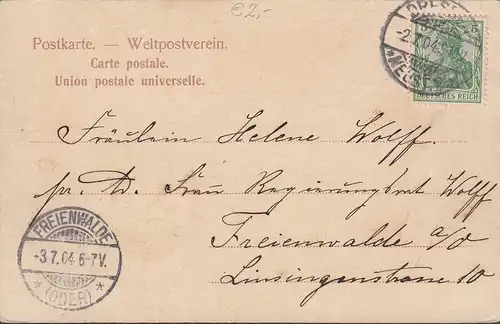 92,-
Postkarte. — Weltpostverein.
Carte postale.
Union postale universelle.
DEUTSCHES REICH
Fräulein Helene Wolff.
pr. Ad. Frau Regierungsrat Wolff
Freienwalde a/O
Linsingenstrasse 10
FREIENWALDE
-3.7.04.6-7V.
* (ODER) *